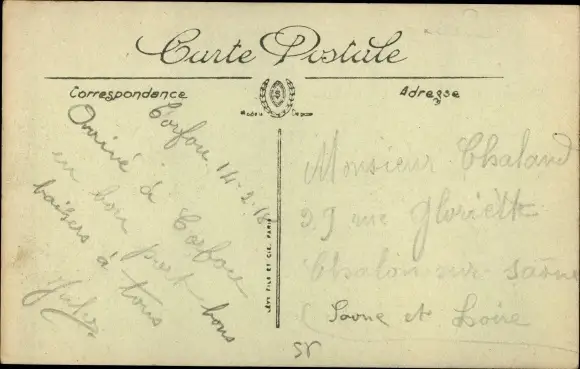 Carte Postale
Correspondance
Adresse
Corfou 14-2-18
Arrivé à Corfou
en bon port bons
baisers à tous
Jules
LÉVY FILS ET CIE, PARIS
Monsieur Chaland
29 rue Gloriette
Chalon sur Saône
Saone et Loire